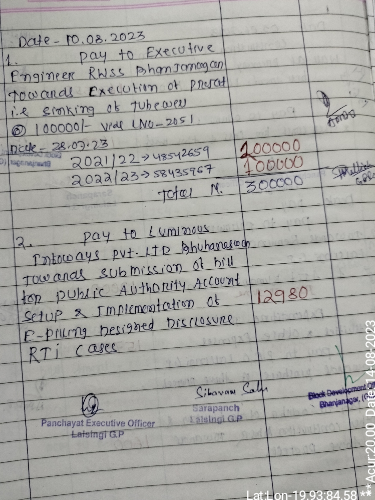 Date - 10.03.2023
1. Pay to Executive
Engineer RWSS Bhanjanagar
Towards Execution of
i.e sinking of tubewell
@ 100000/- vide LNo-2051
Date - 28.02.23
2021/22 → 48542659 200000
2022/23 → 58435967 100000
Total N. 300000
2. Pay to Luminous
Infoways Pvt. LTD Bhubaneswar
Towards submission of bill
for public Authority Account
Setup & Implementation of 12980
E-Filing Designed Disclosure
RTI cases
Panchayat Executive Officer
Lalsingi G.P
Sarapanch
Lalsingi G.P
Block Development
Bhanjanagar,
Lat Lon-19.93:84.58**Acur:20.00 Date:14-08-2023